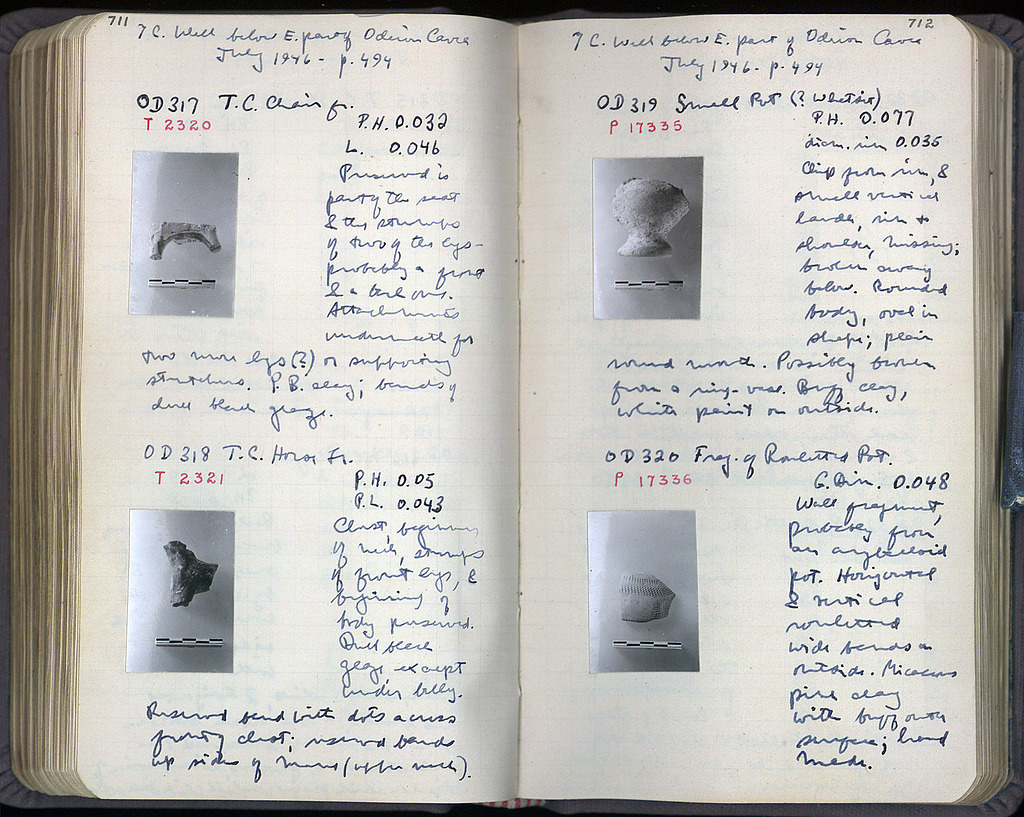 711
7 C. Well below E. part of Odeion Cavea
July 1946 - p. 494
OD 317 T.C. Chair fr.
T 2320
P.H. 0.032
L. 0.046
Preserved is
part of the seat
& the stumps
of two of the legs -
probably a front
& a back one.
Attachments
underneath for
two more legs (?) or supporting
stretchers. P.B. clay; bands of
dull black glaze.
OD 318 T.C. Horse fr.
T 2321
P.H. 0.05
P.L. 0.043
Chest, beginning
of neck, stumps
of front legs, &
beginning of
body preserved.
Dull black
glaze except
under belly.
Reserved band with dots across
front of chest; reserved bands
up sides of mane (upper neck).
712
7 C. Well below E. part of Odeion Cavea
July 1946 - p. 494
OD 319 Small Pot
P 17335
P.H. 0.077
diam. rim 0.035
Chip from rim, &
small vertical
handle, rim to
shoulder, missing;
broken away
below. Rounded
body, oval in
shape; plain
round mouth. Possibly broken
from a ring-vase. Buff clay,
white paint on outside.
OD 320 Frag. of Rouletted Pot.
P 17336
G. Dim. 0.048
Wall fragment,
probably from
an aryballoid
pot. Horizontal
& vertical
rouletted
wide bands on
outside. Micaceous
pink clay
with buff outer
surface; hand
made.